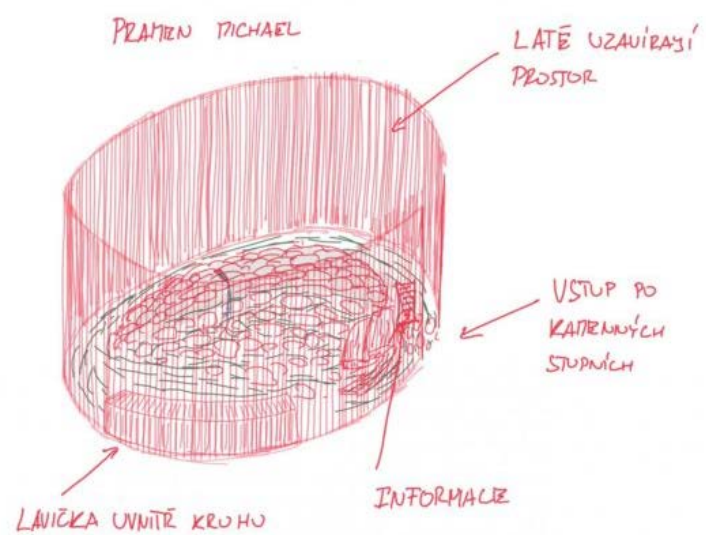 PRAMEN MICHAEL
LATĚ UZAVÍRAJÍ
PROSTOR
VSTUP PO
KAMENNÝCH
STUPNÍCH
INFORMACE
LAVIČKA UVNITŘ KRUHU